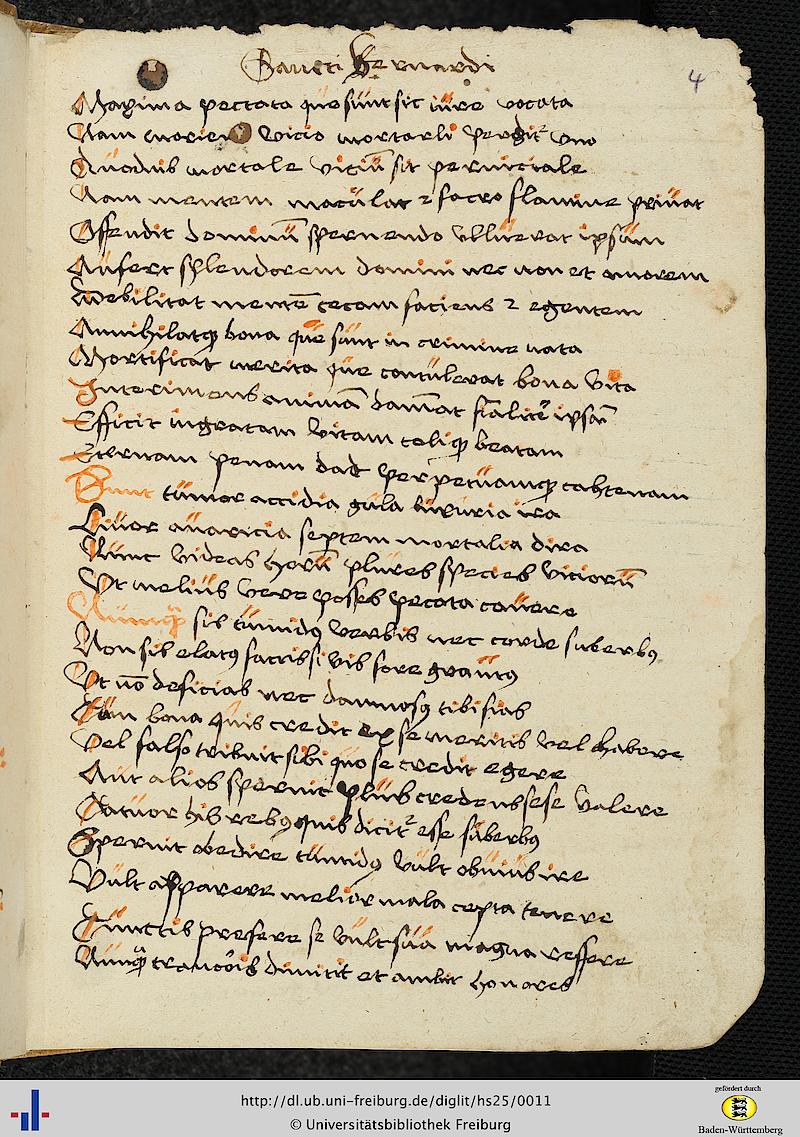 Sancti Bernardi
4
Maxima peccata que sunt sic iure vocata
Nam morien vicio mortarli pergit² vno
Quodnis mortale viciū sit perniciale
Nam mentem maculat ⁊ sacro flamine priuat
Offendit dominū spernendo ipsum
Aufert splendorem domini nec non et amorem
Debilitat mentē cecam faciens ⁊ egentem
Annihilatqȝ bona que sunt in crimine nata
Mortificat merita que contulerat bona vita
Interimens animā damat ipsā
Efficit ingratam vitam celiqȝ beatam
Eternam penam dad perpetuamqȝ cahtenam
Sunt tumor accidia gula luxuria ira
Liuor auaricia septem mortalia dira
Nunc videas horū plures species viciorū
Vt melius vere posses pecata cauere
sis tumidꝯ verbis nec corde suberbꝯ
Non sis elatꝯ factis si vis fore gratꝯ
Vt nō deficias nec damnosꝯ tibi fias
bona quis credit ex se meritis vel habere
Vel falso tribuit sibi quo se credit egere
Aut alios spernit plus credens sese valere
Catuor his rebꝯ quis dicit² esse suberbꝯ
Spernit obedire tumidꝯ vult obuius ire
Vult apparere melior mala cepta tenere
Cunctis prefere se vult sua magna reffere
dimitit et ambit honores
http://dl.ub.uni-freiburg.de/diglit/hs25/0011
© Universitätsbibliothek Freiburg
gefördert durch
Baden-Württemberg